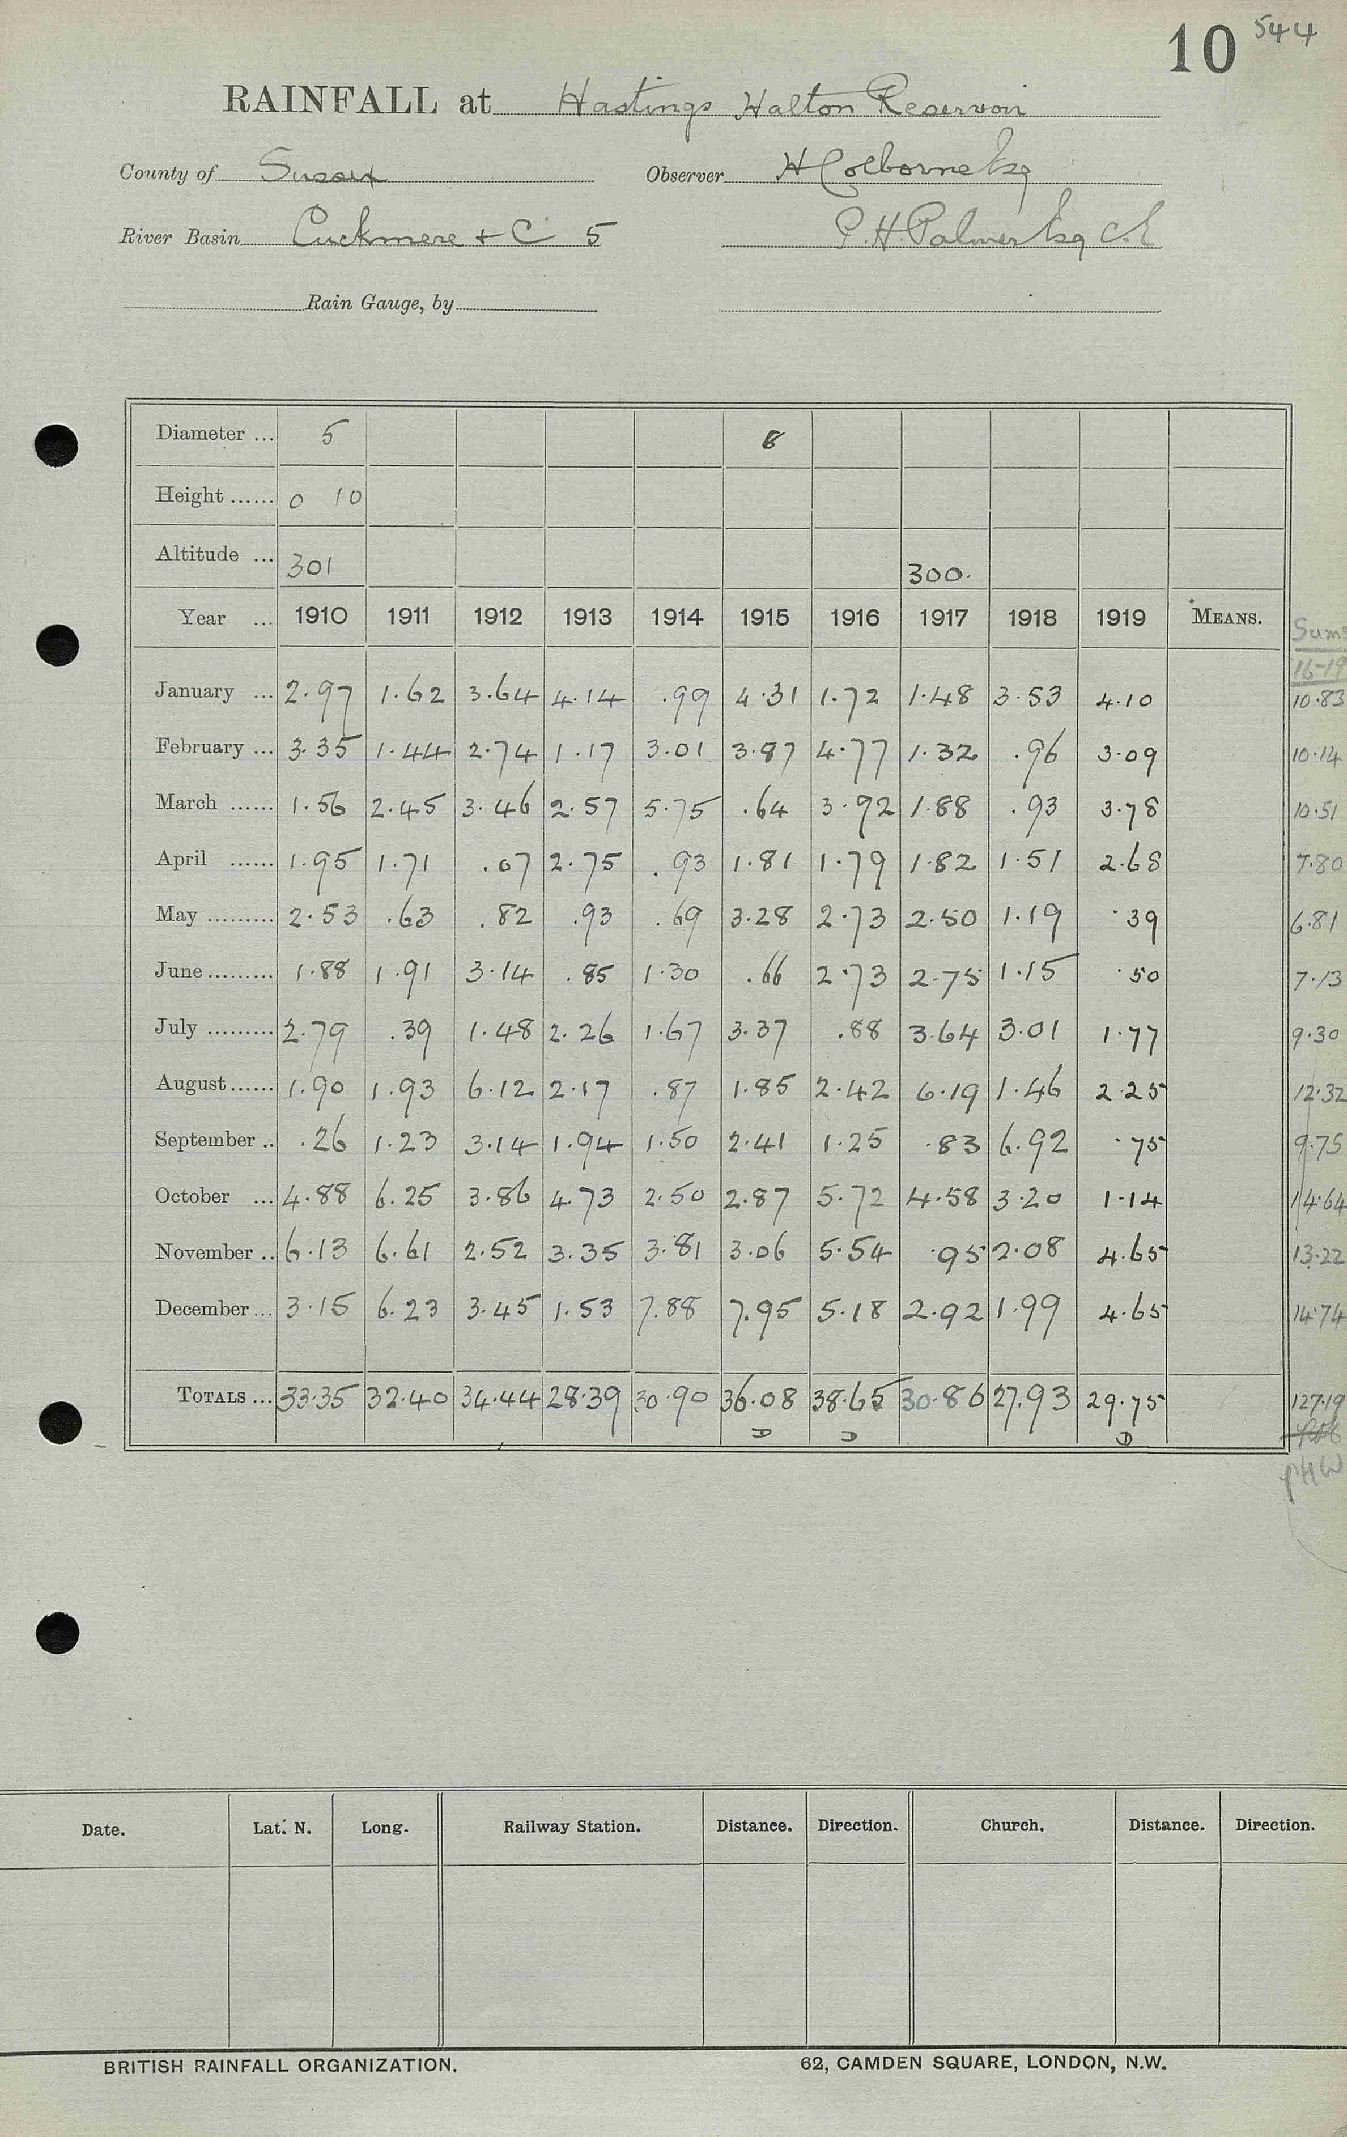 10 544
RAINFALL at Hastings Halton Reservoir
County of Sussex Observer H Colborne Esq
River Basin Cuckmere + C 5 P. H. Palmer Esq C.E
Rain Gauge, by
Diameter ... 5 8
Height ...... 0 10
Altitude ... 301 300.
Year ... 1910 1911 1912 1913 1914 1915 1916 1917 1918 1919 MEANS. Sums
16-19
January ... 2.97 1.62 3.64 4.14 .99 4.31 1.72 1.48 3.53 4.10 10.83
February ... 3.35 1.44 2.74 1.17 3.01 3.87 4.77 1.32 .96 3.09 10.14
March ...... 1.56 2.45 3.46 2.57 5.75 .64 3.92 1.88 .93 3.78 10.51
April ...... 1.95 1.71 .07 2.75 .93 1.81 1.79 1.82 1.51 2.68 7.80
May ......... 2.53 .63 .82 .93 .69 3.28 2.73 2.50 1.19 .39 6.81
June ......... 1.88 1.91 3.14 .85 1.30 .66 2.73 2.75 1.15 .50 7.13
July ......... 2.79 .39 1.48 2.26 1.67 3.37 .88 3.64 3.01 1.77 9.30
August ...... 1.90 1.93 6.12 2.17 .87 1.85 2.42 6.19 1.46 2.25 12.32
September .. .26 1.23 3.14 1.94 1.50 2.41 1.25 .83 6.92 .75 9.75
October ... 4.88 6.25 3.86 4.73 2.50 2.87 5.72 4.58 3.20 1.14 14.64
November .. 6.13 6.61 2.52 3.35 3.81 3.06 5.54 .95 2.08 4.65 13.22
December ... 3.15 6.23 3.45 1.53 7.88 7.95 5.18 2.92 1.99 4.65 14.74
TOTALS ... 33.35 32.40 34.44 28.39 30.90 36.08 38.65 30.86 27.93 29.75 127.19
D D D
PHW
Date. Lat. N. Long. Railway Station. Distance. Direction. Church. Distance. Direction.
BRITISH RAINFALL ORGANIZATION. 62, CAMDEN SQUARE, LONDON, N.W.